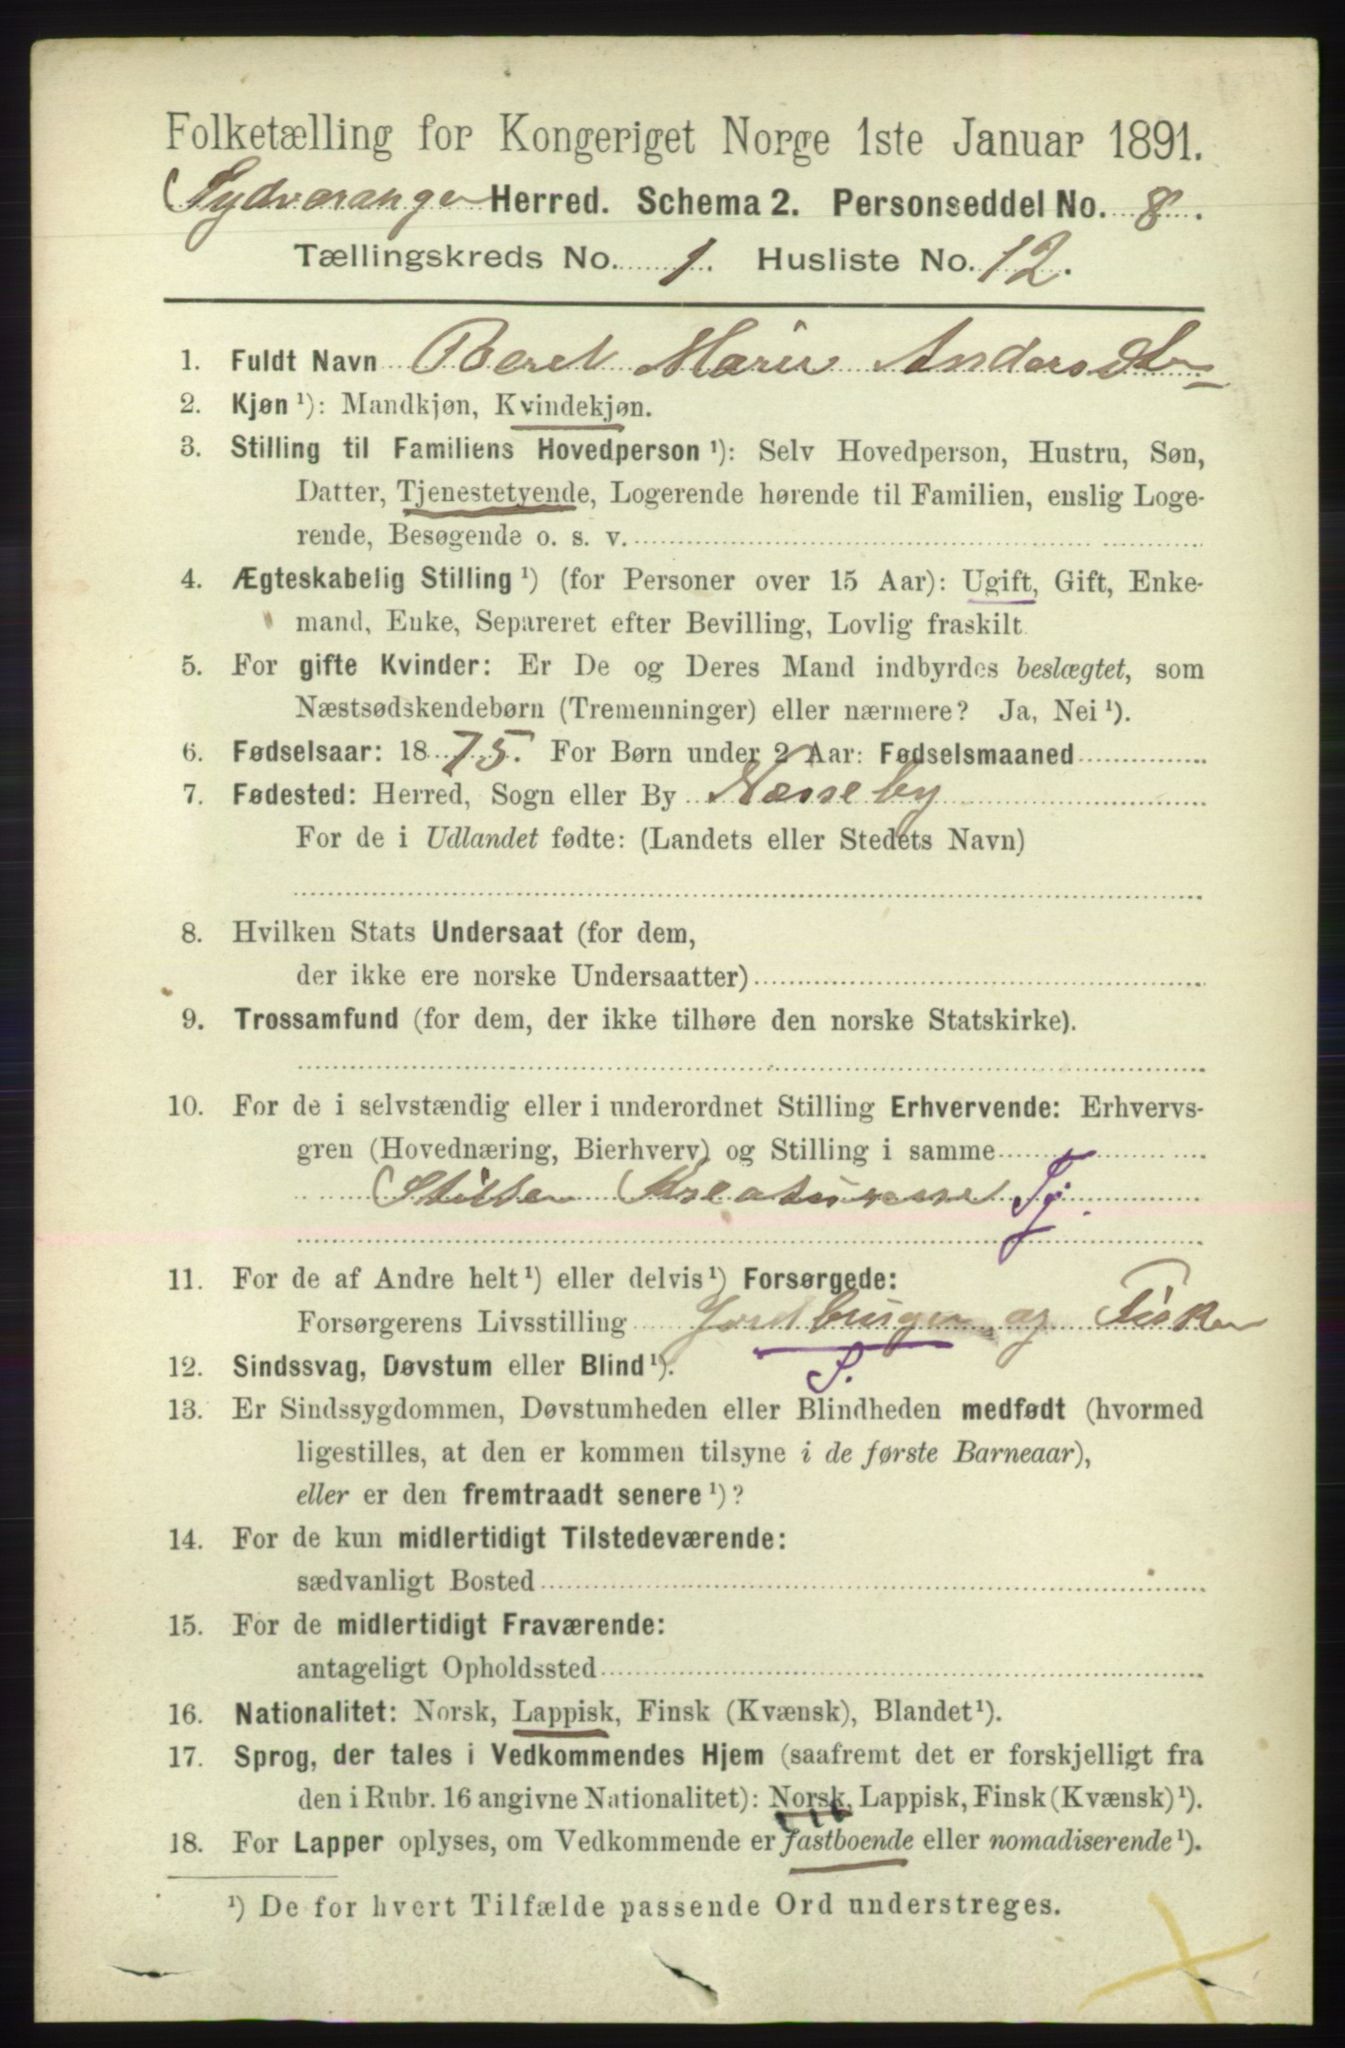 Folketælling for Kongeriget Norge 1ste Januar 1891.
Sydvaranger Herred. Schema 2. Personseddel No. 8.
Tællingskreds No. 1. Husliste No. 12.
1. Fuldt Navn Beret Marie Andersdtr
2. Kjøn ¹): Mandkjøn, Kvindekjøn.
3. Stilling til Familiens Hovedperson ¹): Selv Hovedperson, Hustru, Søn,
Datter, Tjenestetyende, Logerende hørende til Familien, enslig Loge-
rende, Besøgende o. s. v.
4. Ægteskabelig Stilling ¹) (for Personer over 15 Aar): Ugift, Gift, Enke-
mand, Enke, Separeret efter Bevilling, Lovlig fraskilt
5. For gifte Kvinder: Er De og Deres Mand indbyrdes beslægtet, som
Næstsødskendebørn (Tremenninger) eller nærmere? Ja, Nei ¹).
6. Fødselsaar: 1875. For Børn under 2 Aar: Fødselsmaaned
7. Fødested: Herred, Sogn eller By Næsseby
For de i Udlandet fødte: (Landets eller Stedets Navn)
8. Hvilken Stats Undersaat (for dem,
der ikke ere norske Undersaatter)
9. Trossamfund (for dem, der ikke tilhøre den norske Statskirke).
10. For de i selvstændig eller i underordnet Stilling Erhvervende: Erhvervs-
gren (Hovednæring, Bierhverv) og Stilling i samme
Steller Kreaturene Tj.
11. For de af Andre helt ¹) eller delvis ¹) Forsørgede:
Forsørgerens Livsstilling Jordbruger og Fisker
12. Sindssvag, Døvstum eller Blind ¹). S.
13. Er Sindssygdommen, Døvstumheden eller Blindheden medfødt (hvormed
ligestilles, at den er kommen tilsyne i de første Barneaar),
eller er den fremtraadt senere ¹)?
14. For de kun midlertidigt Tilstedeværende:
sædvanligt Bosted
15. For de midlertidigt Fraværende:
antageligt Opholdssted
16. Nationalitet: Norsk, Lappisk, Finsk (Kvænsk), Blandet ¹).
17. Sprog, der tales i Vedkommendes Hjem (saafremt det er forskjelligt fra
den i Rubr. 16 angivne Nationalitet): Norsk, Lappisk, Finsk (Kvænsk) ¹).
18. For Lapper oplyses, om Vedkommende er fastboende eller nomadiserende ¹).
¹) De for hvert Tilfælde passende Ord understreges.